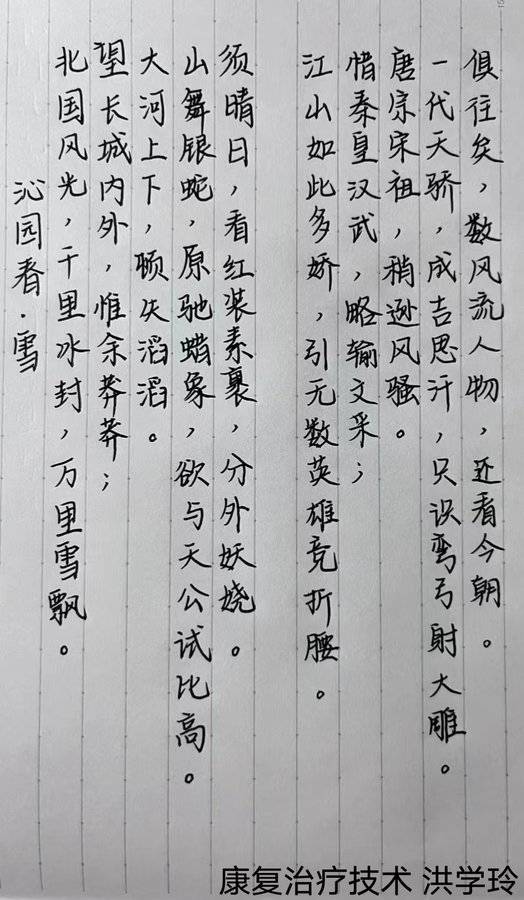 沁园春·雪
北国风光，千里冰封，万里雪飘。
望长城内外，惟余莽莽；
大河上下，顿失滔滔。
山舞银蛇，原驰蜡象，欲与天公试比高。
须晴日，看红装素裹，分外妖娆。
江山如此多娇，引无数英雄竞折腰。
惜秦皇汉武，略输文采；
唐宗宋祖，稍逊风骚。
一代天骄，成吉思汗，只识弯弓射大雕。
俱往矣，数风流人物，还看今朝。
康复治疗技术 洪学玲